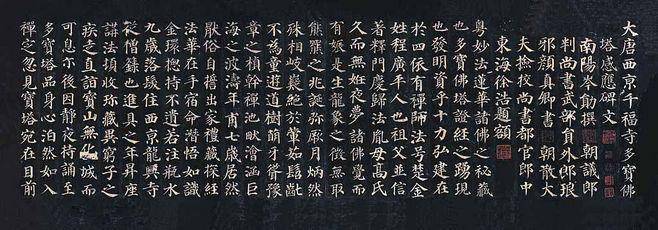 大唐西京千福寺多寶佛
塔感應碑文
南陽岑勛撰 朝議郎
判尚書武部員外郎琅
邪顏真卿書 朝散大
夫撿校尚書都官郎中
東海徐浩題額
粵妙法蓮華諸佛之秘藏
也多寶佛塔證經之踴現
也發明資乎十力弘建在
於四依有禪師法号楚金
姓程廣平人也祖父並信
著釋門慶歸法胤母高氏
久而無姙夜夢諸佛覺而
有娠是生龍象之徵無取
熊羆之兆誕弥厥月炳然
殊相岐嶷絕於葷茹髫齔
不為童遊道樹萌牙聳豫
章之楨幹禪池畎澮涵巨
海之波濤年甫七歲居然
厭俗自誓出家禮藏探經
法華在手宿命潛悟如識
金環揔持不遺若注瓶水
九歲落髮住西京龍興寺
從僧籙也進具之年昇座
講法頓收珍藏異窮子之
疾走直詣寶山無化城而
可息尒後因靜夜持誦至
多寶塔品身心泊然如入
禪定忽見寶塔宛在目前